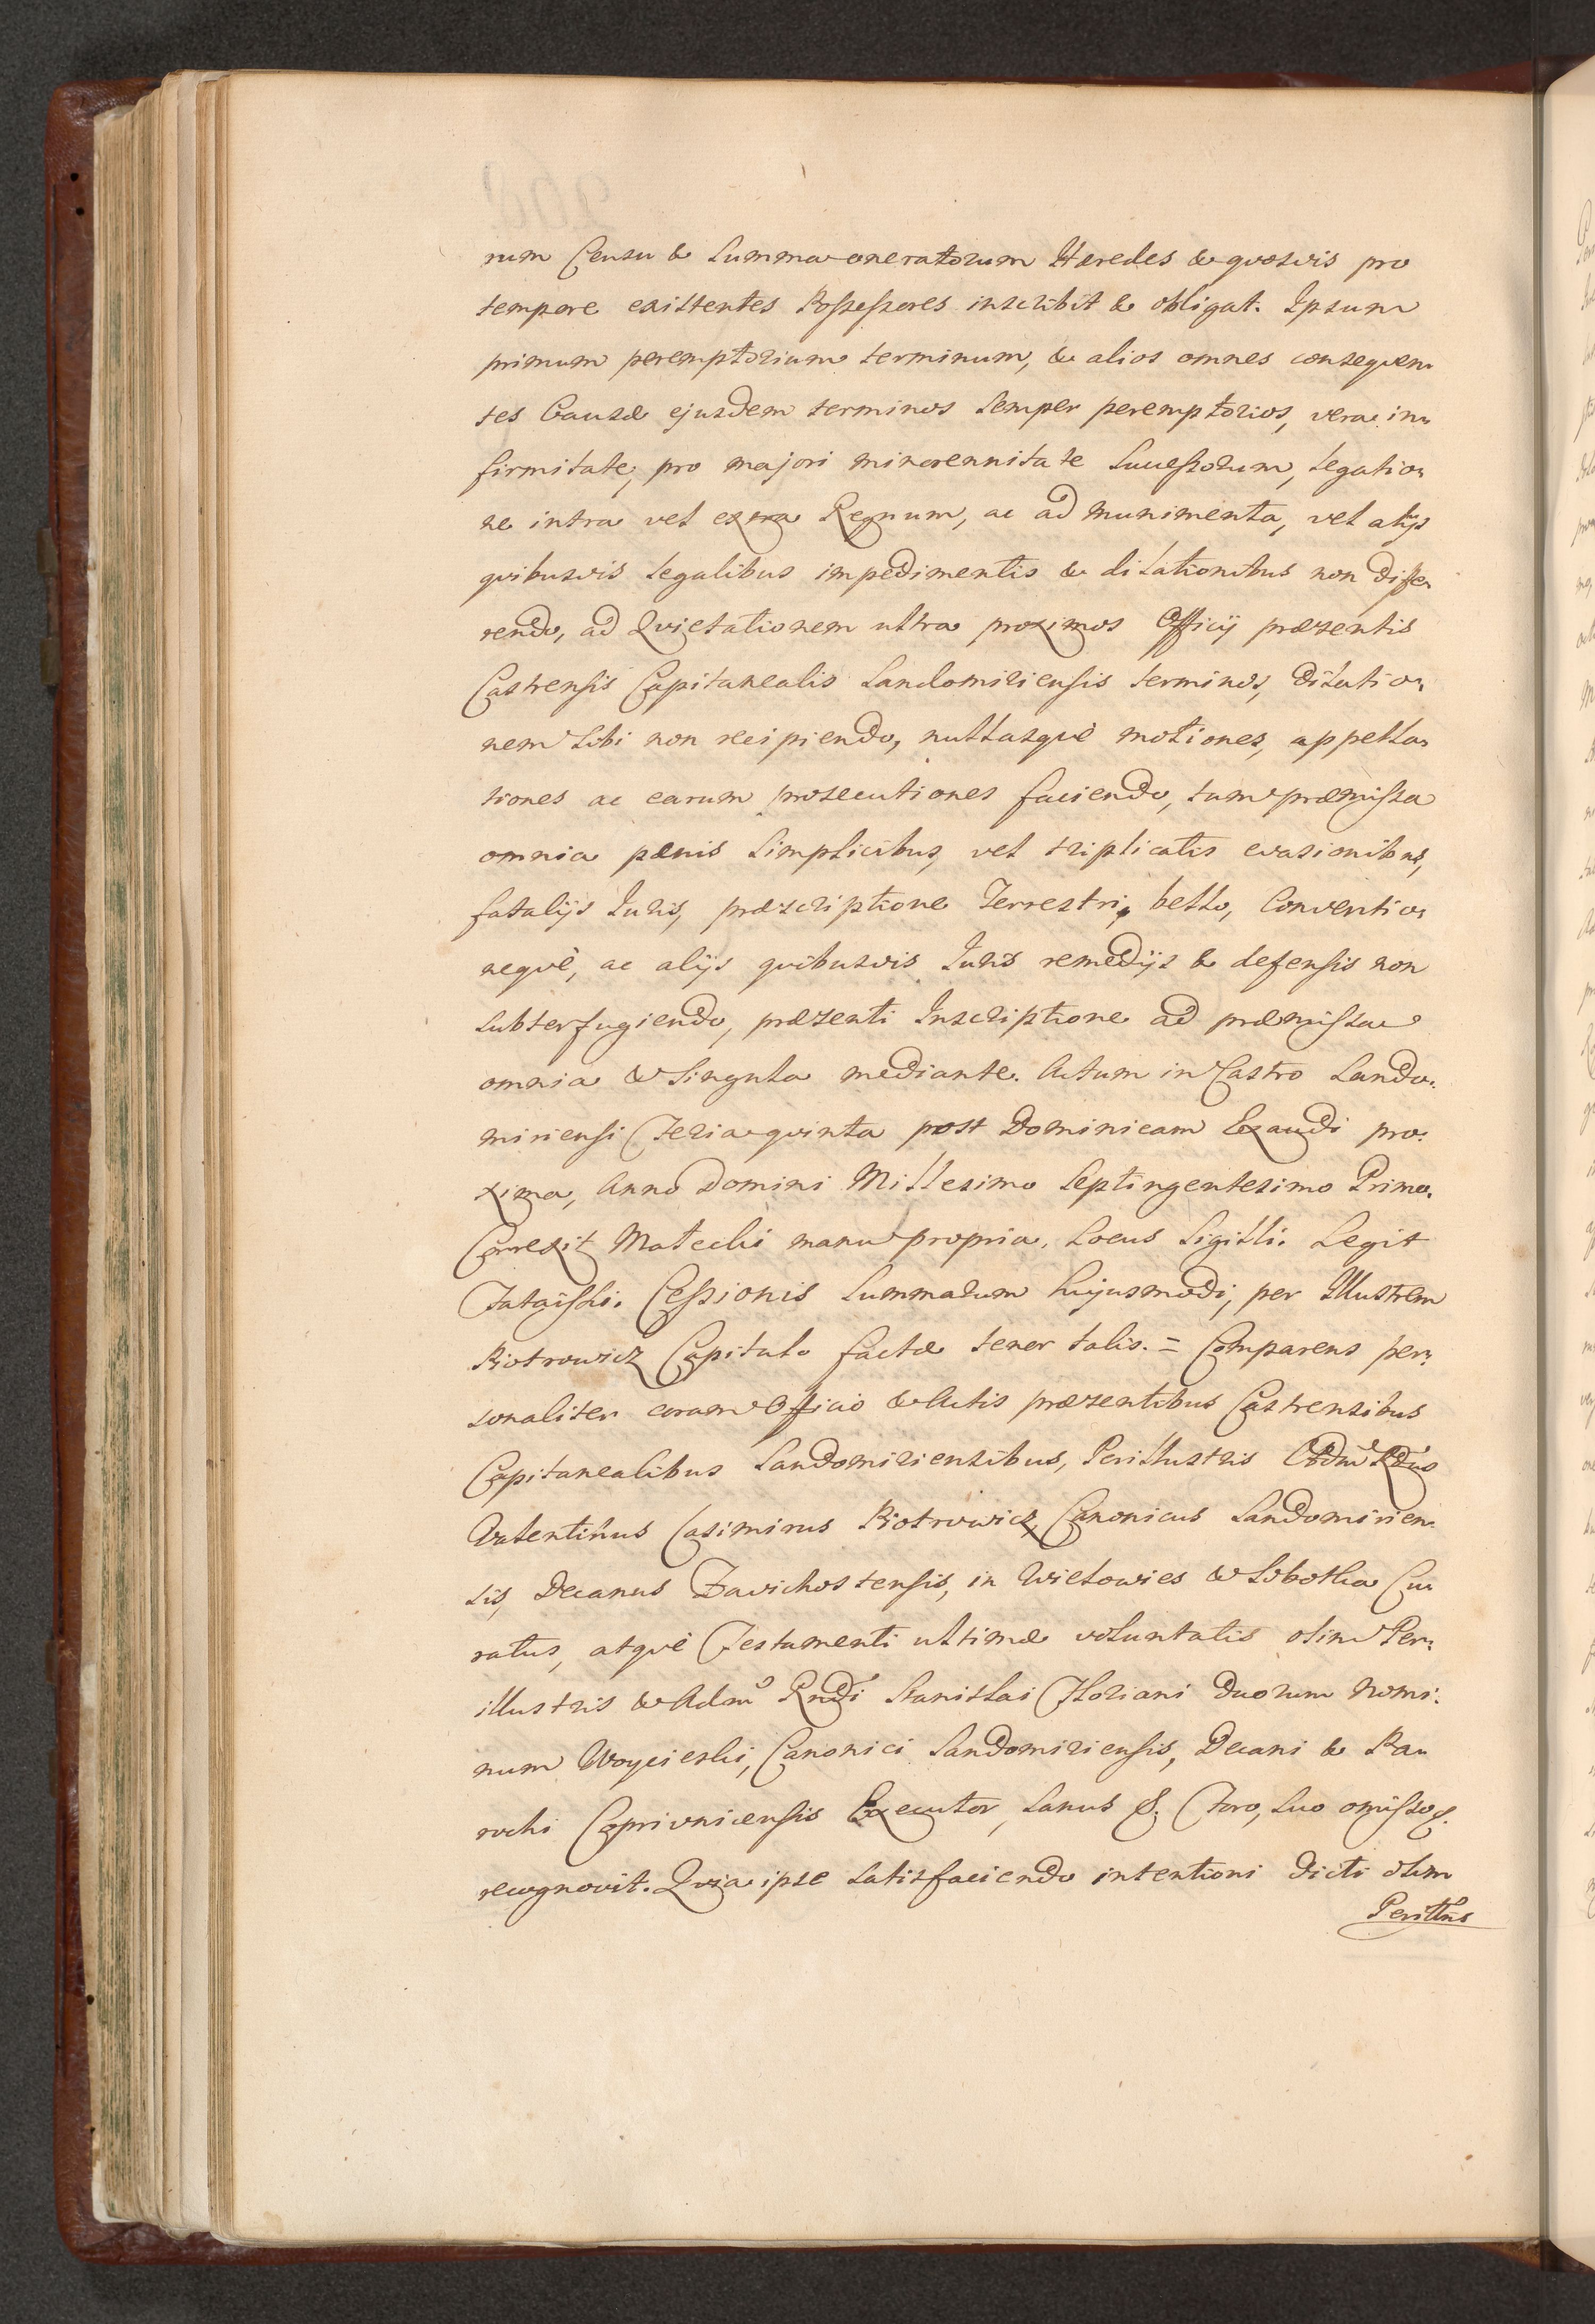 rum Censu & Summa oneratorum Hæredes & quosvis pro
tempore existentes Possessores inscribit & obligat. Ipsum
primum peremptorium terminum, & alios omnes consequen
tes Causæ ejusdem terminos semper peremptorios, vera in
firmitate, pro majori minorennitate Successorum, legatio
ne intra vel extra Regnum, ac ad munimenta, vel alijs
quibusvis legalibus impedimentis & dilationibus non diffe
rendo, ad Quietationem ultra proximos Officij præsentis
Castrensis Capitanealis Sandomiriensis terminos, dilatio
nem sibi non recipiendo, nullasquè motiones, appella
tiones ac earum prosecutiones faciendo, tum præmissa
omnia pænis simplicibus, vel triplicatis evasionibus,
fatalijs Juris, præscriptione Terrestri, bello, Conventio
nequè, ac alijs quibusvis Juris remedijs & defensis non
subterfugiendo, præsenti Inscriptione ad præmissa
omnia & singula mediante. Actum in Castro Sando:
miriensi Feria quinta post Dominicam Exaudi pro:
xima, Anno Domini Millesimo Septingentesimo Primo.
Correxit Matecki manu propria. Locus Sigilli. Legit
Cessionis Summarum hujusmodi, per Illustrem
Piotrowicz Capitulo factæ tenor talis. = Comparens per:
sonaliter coram Officio & Actis præsentibus Castrensibus
Capitanealibus Sandomiriensibus, Perillustris Rdus
Valentinus Casimirus Piotrowicz Canonicus Sandomirien
sis, Decanus Zavichostensis, in Wielowies & Sobotka Cu
ratus, atquè Testamenti ultimæ voluntatis olim Per:
illustris & Adm Rndi Stanislai Floriani duorum nomi:
num Woyciecki, Canonici Sandomiriensis, Decani & Pa
rochi Coprivnicensis Executor, sanus &. Foro, suo omisso &.
recognovit. Quia ipse satisfaciendo intentioni dicti olim
Perillus